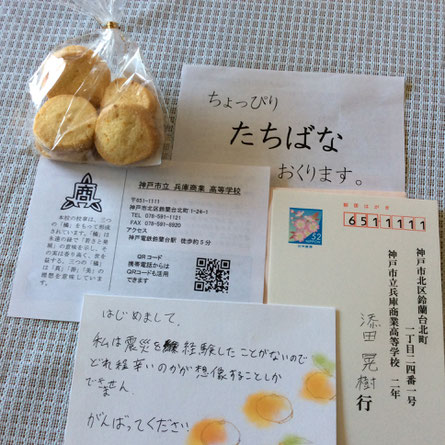 ちょっぴり
たちばな
おくります。
商
神戸市立 兵庫商業 高等学校
〒651-1111
神戸市北区鈴蘭台北町 1-24-1
TEL 078-591-1121
FAX 078-591-6920
アクセス
神戸電鉄鈴蘭台駅 徒歩約5分
QRコード
携帯電話からは
QRコードも活用
できます
郵便はがき
52
6511111
神戸市北区鈴蘭台北町
一丁目二四番一号
神戸市立兵庫商業高等学校 二年
添田 晃樹 行
はじめまして、
私は震災を経験したことがないので
どれ程辛いのかが想像することしか
できません
がんばってください